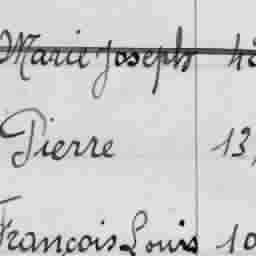 Marie Joseph
Pierre 13,
François Louis 10